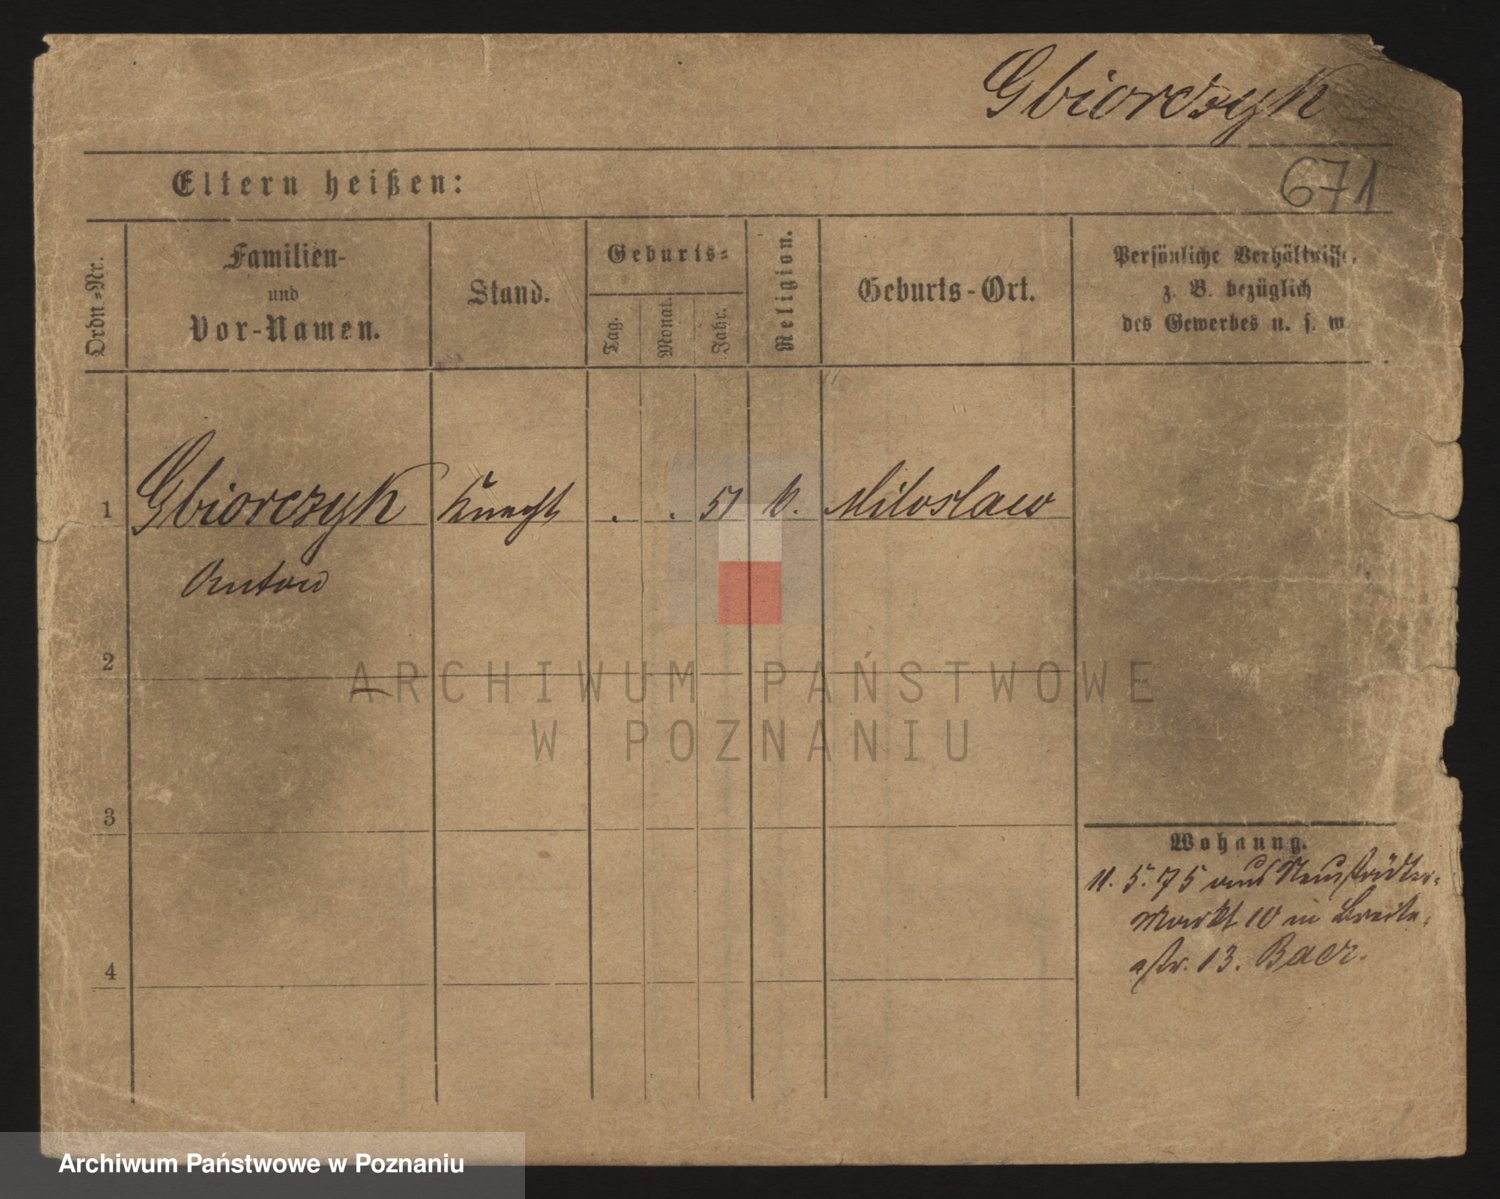 Gbiorczyk
671
Eltern heißen:
Ordn.-Nr.
Familien-
und
Vor-Namen.
Stand.
Geburts-
Tag.
Monat.
Jahr.
Religion.
Geburts-Ort.
Persönliche Verhältnisse,
z. B. bezüglich
des Gewerbes u. s. w.
1 Gbiorczyk Knecht . . 51 k. Miloslaw
Anton
2
3
4
Wohnung.
11. 5. 75 aus Neustädter-
Markt 10 in Breite-
str. 13. Baer.
ARCHIWUM PAŃSTWOWE
W POZNANIU
Archiwum Państwowe w Poznaniu